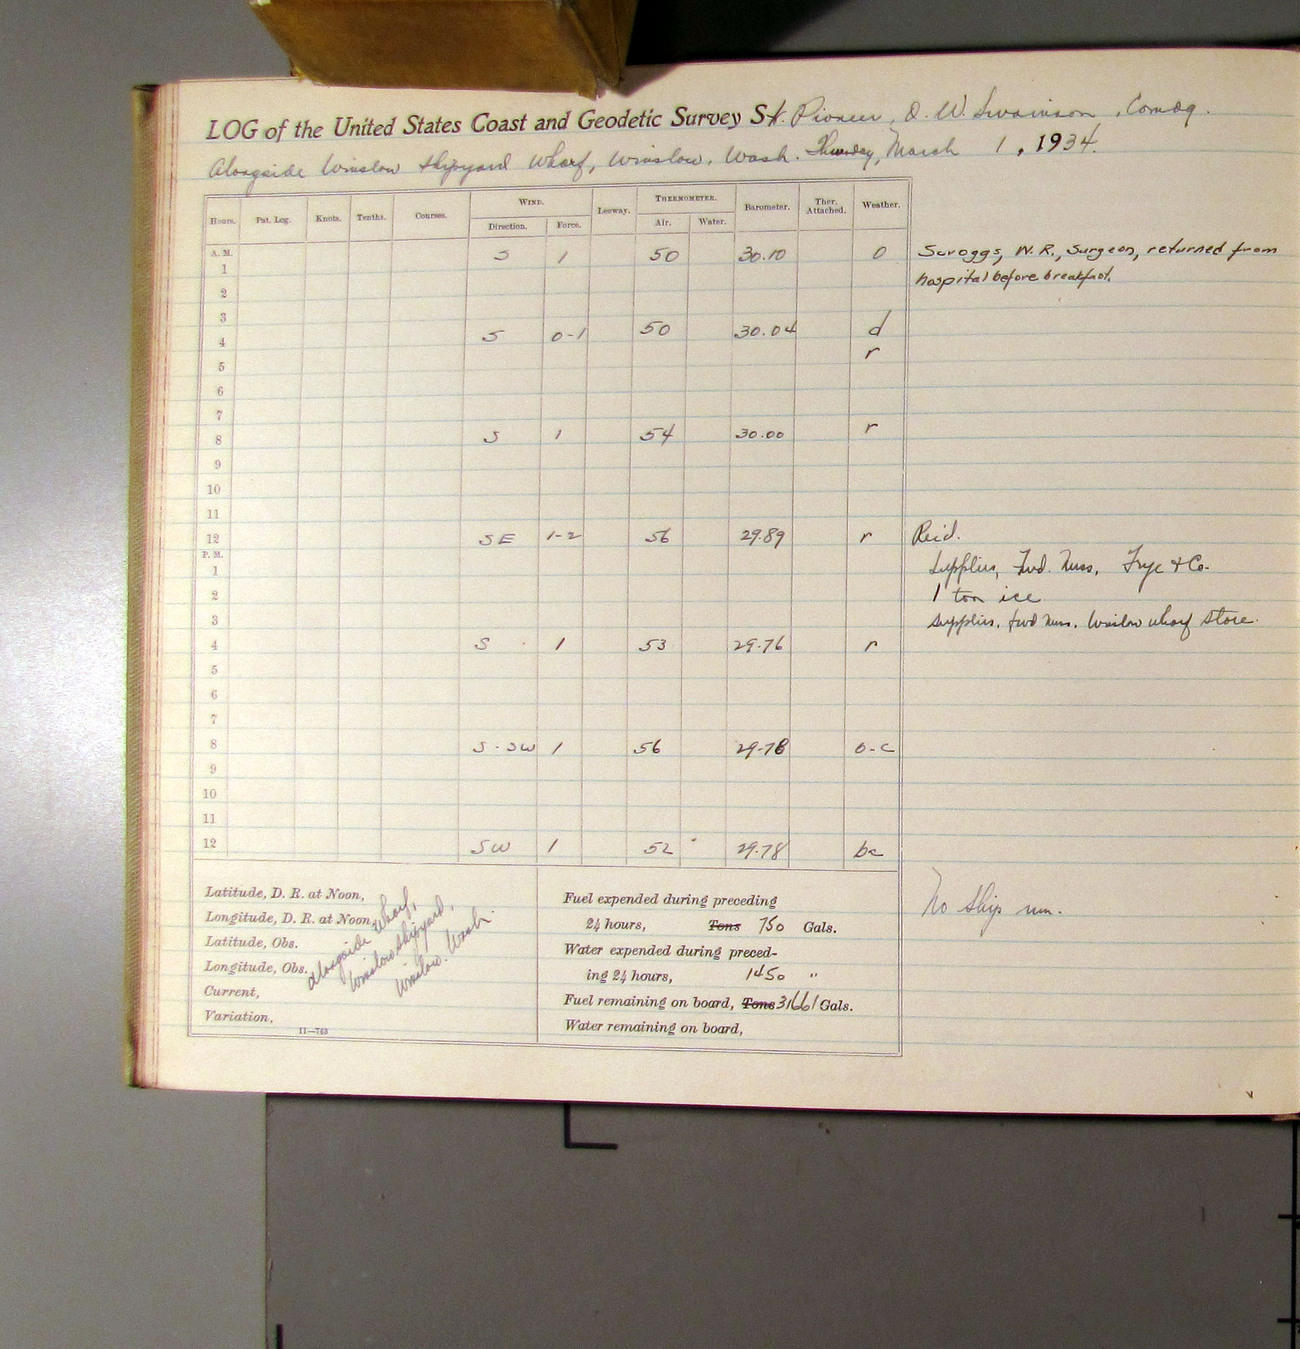 LOG of the United States Coast and Geodetic Survey Str. Pioneer, O. W. Swainson, Comdg.
Alongside Winslow Shipyard Wharf, Winslow, Wash. Thursday, March 1, 1934.
Hours. Pat. Log. Knots. Tenths. Courses. WIND. Leeway. THERMOMETER. Barometer. Ther. Attached. Weather.
Direction. Force. Air. Water.
A. M.
1 S 1 50 30.10 o Scroggs, W. R., Surgeon, returned from
2 hospital before breakfast.
3
4 S 0-1 50 30.04 d
5 r
6
7
8 S 1 54 30.00 r
9
10
11
12 SE 1-2 56 29.89 r Reid.
P. M.
1 Supplies, Fwd. Mess, Frye & Co.
2 1 ton ice
3 supplies, fwd mess. Winslow wharf store.
4 S 1 53 29.76 r
5
6
7
8 S-SW 1 56 29.78 o-c
9
10
11
12 SW 1 52 29.78 bc
Latitude, D. R. at Noon,
Longitude, D. R. at Noon,
Latitude, Obs.
Longitude, Obs.
Current,
Variation,
alongside wharf,
Winslow shipyard,
Winslow. Wash.
11—763
Fuel expended during preceding
24 hours, Tons 750 Gals.
Water expended during preced-
ing 24 hours, 1450 "
Fuel remaining on board, Tons 31661 Gals.
Water remaining on board,
No ship run.